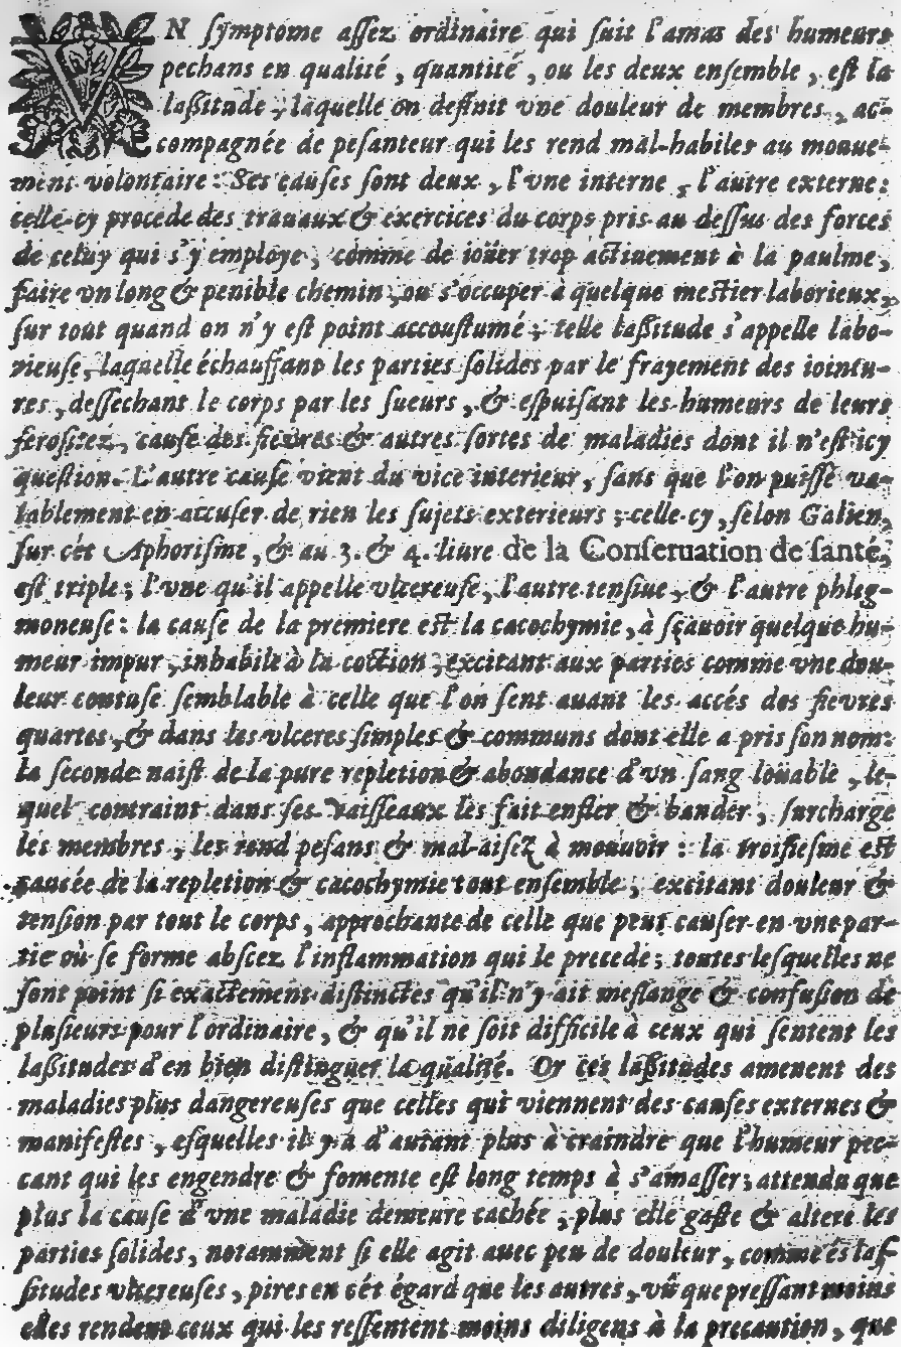 VN ſymptome aſſez ordinaire qui ſuit l'amas des humeurs
pechans en qualité, quantité, ou les deux enſemble, eſt la
laſſitude ; laquelle on definit vne douleur de membres, ac-
compagnée de peſanteur qui les rend mal-habiles au mouue-
ment volontaire : Ses cauſes ſont deux, l'vne interne, l'autre externe :
celle-cy procede des trauaux & exercices du corps pris au deſſus des forces
de celuy qui s'y employe, comme de ioüer trop actiuement à la paulme,
faire vn long & penible chemin, ou s'occuper à quelque meſtier laborieux,
ſur tout quand on n'y eſt point accouſtumé ; telle laſſitude s'appelle labo-
rieuſe, laquelle échauffant les parties ſolides par le frayement des iointu-
res, deſſechant le corps par les ſueurs, & eſpuiſant les humeurs de leurs
ſeroſitez, cauſe des fievres & autres ſortes de maladies dont il n'eſt icy
queſtion. L'autre cauſe vient du vice interieur, ſans que l'on puiſſe va-
lablement en accuſer de rien les ſujets exterieurs ; celle-cy, ſelon Galien,
ſur cét Aphoriſme, & au 3. & 4. liure de la Conſeruation de ſanté,
eſt triple ; l'vne qu'il appelle vlcereuſe, l'autre tenſiue, & l'autre phleg-
moneuſe : la cauſe de la premiere eſt la cacochymie, à ſçauoir quelque hu-
meur impur, inhabile à la coction, excitant aux parties comme vne dou-
leur contuſe ſemblable à celle que l'on ſent auant les accés des fievres
quartes, & dans les vlceres ſimples & communs dont elle a pris ſon nom :
la ſeconde naiſt de la pure repletion & abondance d'vn ſang loüable, le-
quel contraint dans ſes vaiſſeaux les fait enfler & bander, ſurcharge
les membres, les rend peſans & mal-aiſez à mouuoir : la troiſieſme eſt
cauſée de la repletion & cacochymie tout enſemble, excitant douleur &
tenſion par tout le corps, approchante de celle que peut cauſer en vne par-
tie où ſe forme abſcez l'inflammation qui le precede ; toutes leſquelles ne
ſont point ſi exactement diſtinctes qu'il n'y ait meſlange & confuſion de
pluſieurs pour l'ordinaire, & qu'il ne ſoit difficile à ceux qui ſentent les
laſſitudes d'en bien diſtinguer la qualité. Or ces laſſitudes amenent des
maladies plus dangereuſes que celles qui viennent des cauſes externes &
manifeſtes, eſquelles il y a d'autant plus à craindre que l'humeur pec-
cant qui les engendre & fomente eſt long temps à s'amaſſer ; attendu que
plus la cauſe d'vne maladie demeure cachée, plus elle gaſte & altere les
parties ſolides, notamment ſi elle agit auec peu de douleur, comme és laſ-
ſitudes vlcereuſes, pires en cét égard que les autres, vû que preſſant moins
elles rendent ceux qui les reſſentent moins diligens à la precaution, que